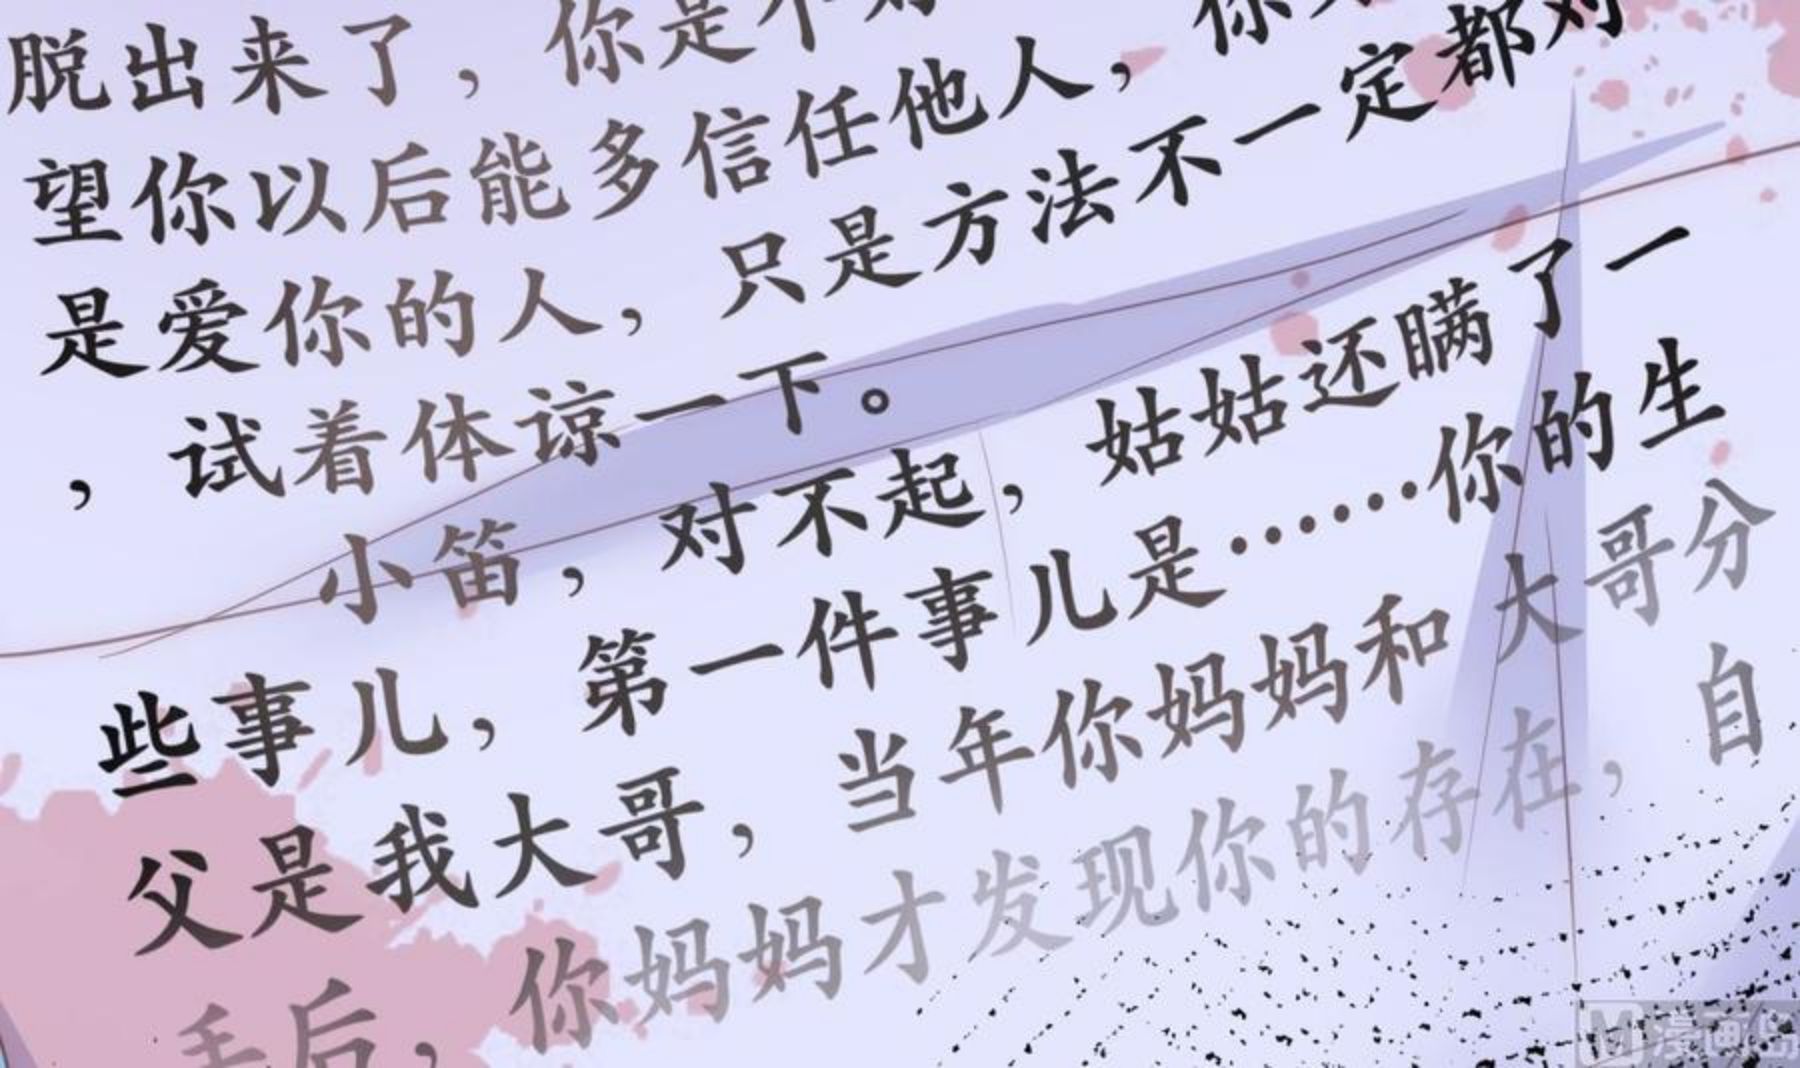 脱出来了，你是不
望你以后能多信任他人，你
是爱你的人，只是方法不一定都对
，试着体谅一下。
小笛，对不起，姑姑还瞒了一
些事儿，第一件事儿是……你的生
父是我大哥，当年你妈妈和大哥分
手后，你妈妈才发现你的存在，自
漫画岛